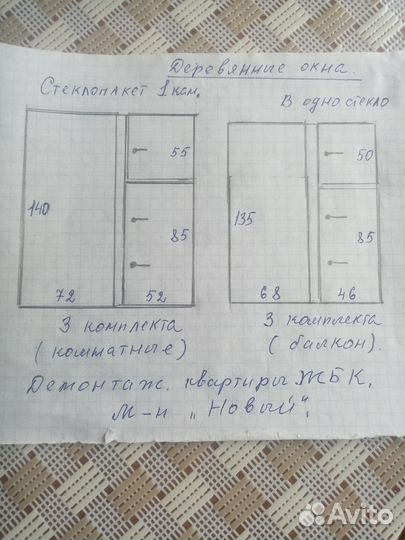 Деревянные окна.
Стеклопакет 1 кам.
В одно стекло
55
50
140
135
85
85
72
52
68
46
3 комплекта
(комнатные)
3 комплекта
(балкон).
Демонтаж. квартиры ЖБК,
м-н "Новый",
Avito